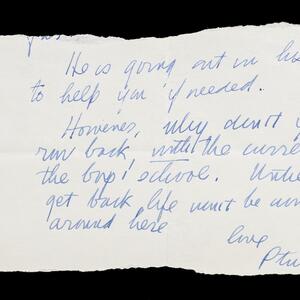 He is going out in his
to help you if needed.
However, why don't y
run back, with the curre
the boys' school. Unle
get back life won't be wor
around here
love